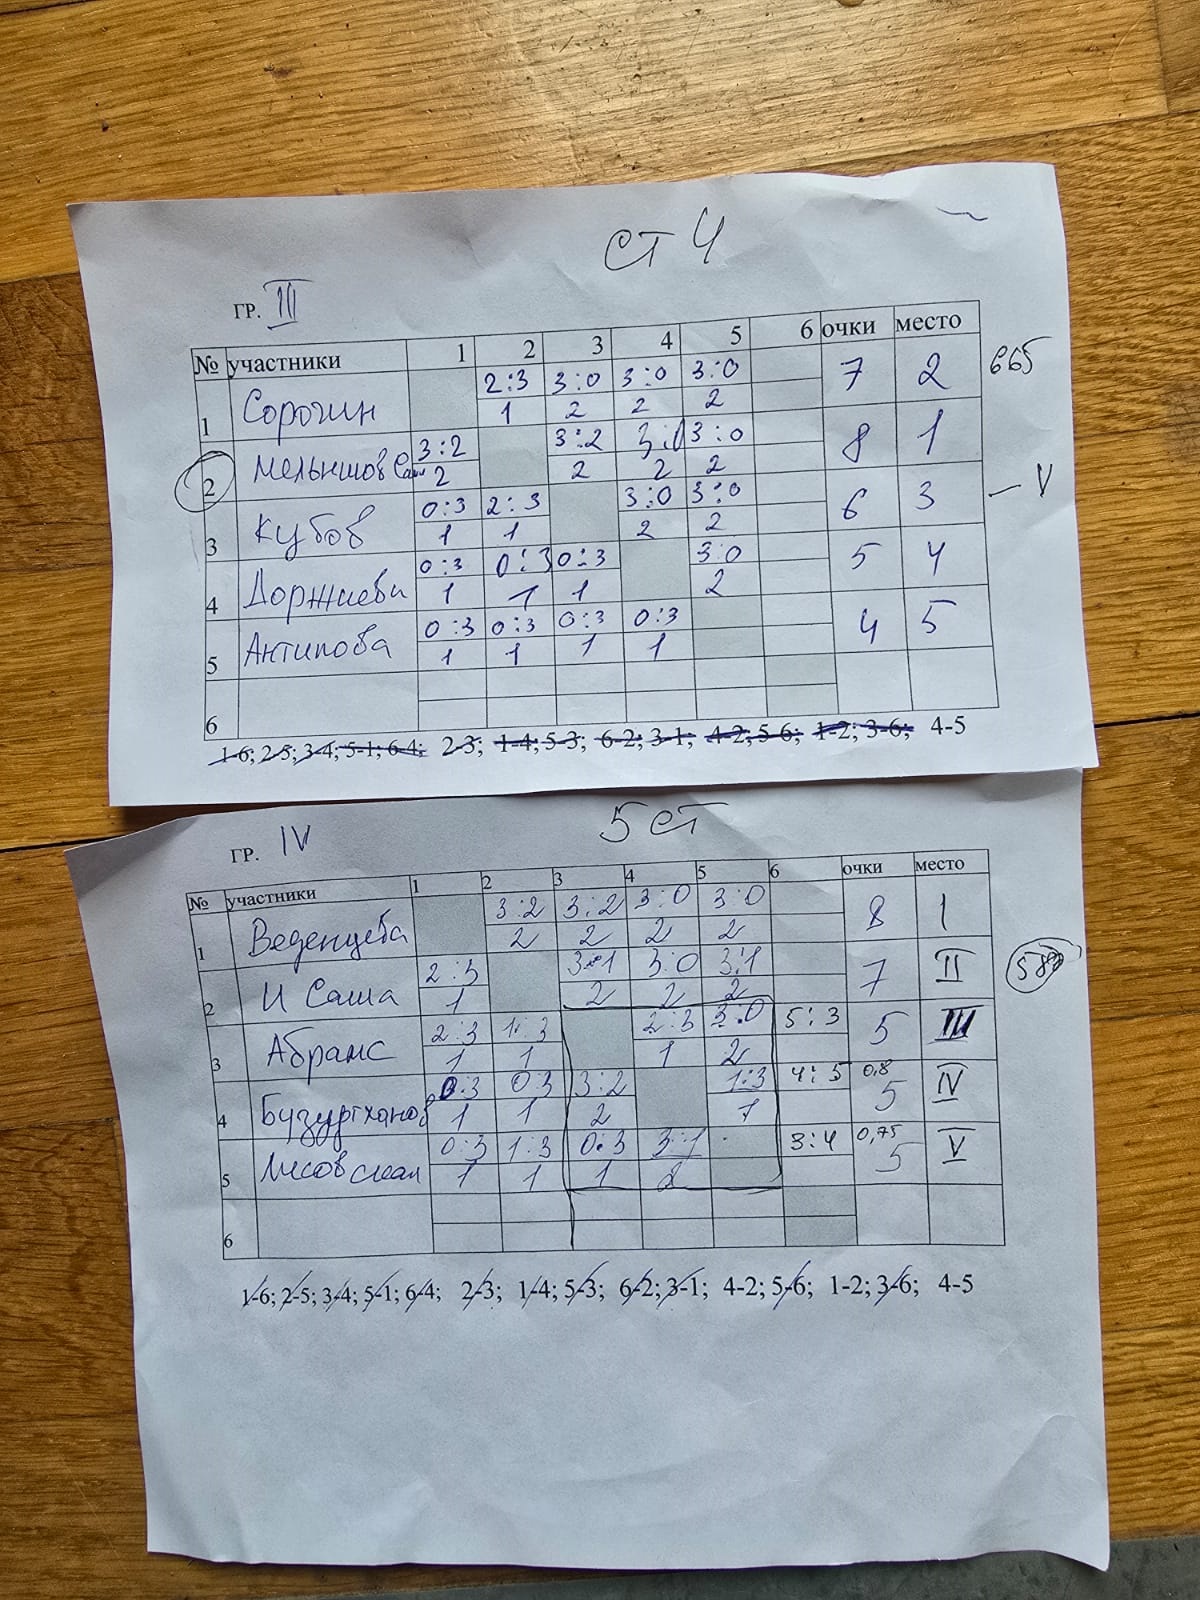 ст 4
ГР. III
№ участники 1 2 3 4 5 6 очки место
1 Сорочин 2:3 3:0 3:0 3:0 7 2 665
1 2 2 2
2 Мельншов Саш 3:2 3:2 3:0 3:0 8 1
2 2 2 2
3 Кубов 0:3 2:3 3:0 3:0 6 3 — V
1 1 2 2
4 Доржиева 0:3 0:3 0:3 3:0 5 4
1 1 1 2
5 Антипова 0:3 0:3 0:3 0:3 4 5
1 1 1 1
6
1-6; 2-5; 3-4; 5-1; 6-4; 2-3; 1-4; 5-3; 6-2; 3-1; 4-2; 5-6; 1-2; 3-6; 4-5
5 ст
ГР. IV
№ участники 1 2 3 4 5 6 очки место
1 Веденцева 3:2 3:2 3:0 3:0 8 1
2 2 2 2
2 И Саша 2:3 3:1 3:0 3:1 7 II
1 2 2 2
3 Абрамс 2:3 1:3 2:3 3:0 5:3 5 III
1 1 1 2
4 Бузуртханов 0:3 0:3 3:2 1:3 4:5 0,8 5 IV
1 1 2 1
5 0:3 1:3 0:3 3:1 3:4 0,75 5 V
1 1 1 2
6
1-6; 2-5; 3-4; 5-1; 6-4; 2-3; 1-4; 5-3; 6-2; 3-1; 4-2; 5-6; 1-2; 3-6; 4-5